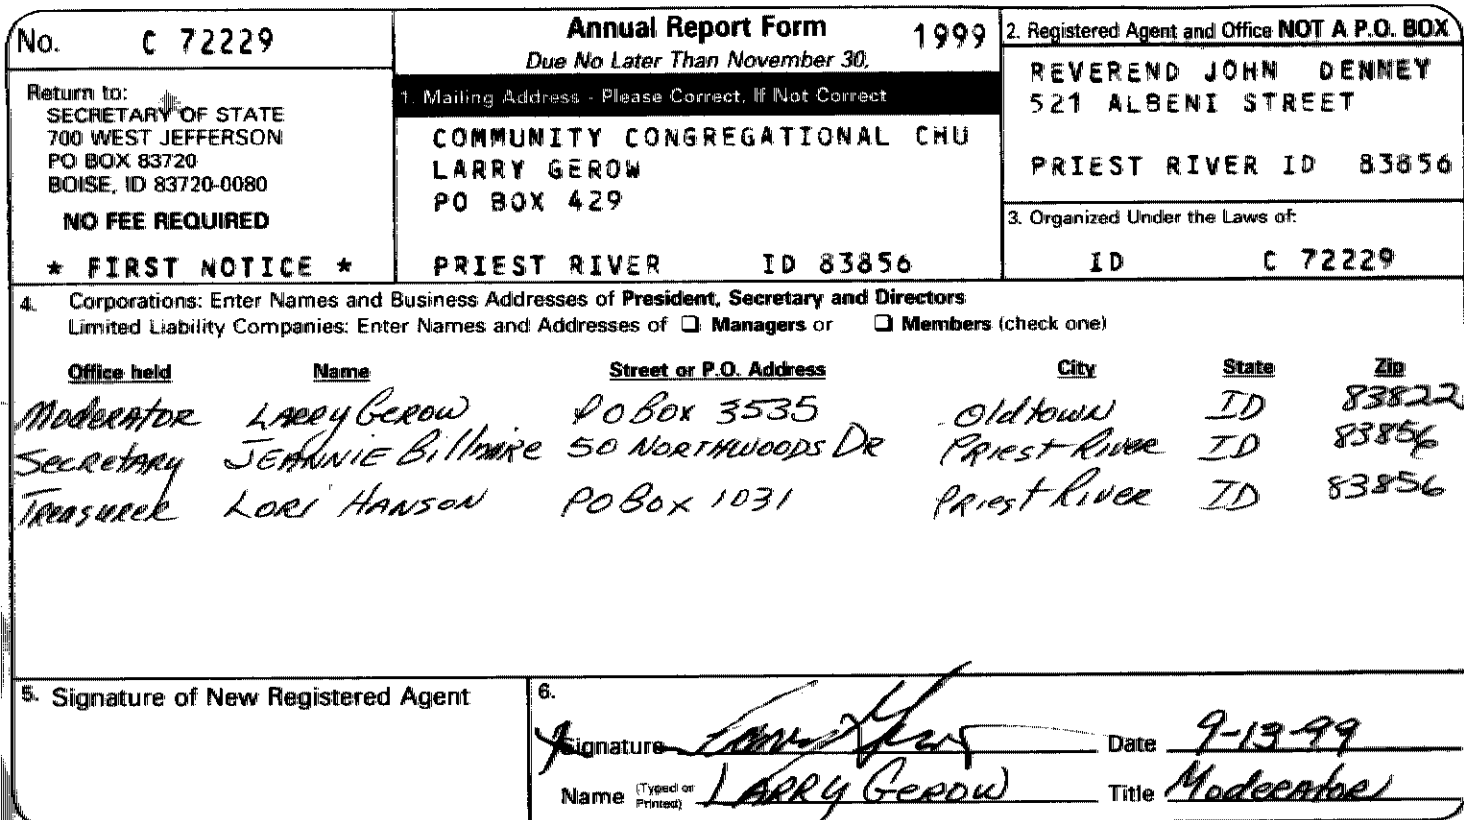 No. C 72229
Return to:
SECRETARY OF STATE
700 WEST JEFFERSON
PO BOX 83720
BOISE, ID 83720-0080
NO FEE REQUIRED
* FIRST NOTICE *
Annual Report Form 1999
Due No Later Than November 30,
1. Mailing Address - Please Correct, If Not Correct
COMMUNITY CONGREGATIONAL CHU
LARRY GEROW
PO BOX 429
PRIEST RIVER ID 83856
2. Registered Agent and Office NOT A P.O. BOX
REVEREND JOHN DENNEY
521 ALBENI STREET
PRIEST RIVER ID 83856
3. Organized Under the Laws of:
ID C 72229
4. Corporations: Enter Names and Business Addresses of President, Secretary and Directors
Limited Liability Companies: Enter Names and Addresses of ☐ Managers or ☐ Members (check one)
Office held Name Street or P.O. Address City State Zip
Moderator LARRY GEROW PO BOX 3535 Oldtown ID 83822
Secretary JEANNIE Billmire 50 NORTHWOODS DR Priest River ID 83856
Treasurer LORI HANSON PO BOX 1031 Priest River ID 83856
5. Signature of New Registered Agent
6.
Signature Larry Gerow Date 9-13-99
Name (Typed or Printed) LARRY GEROW Title Moderator